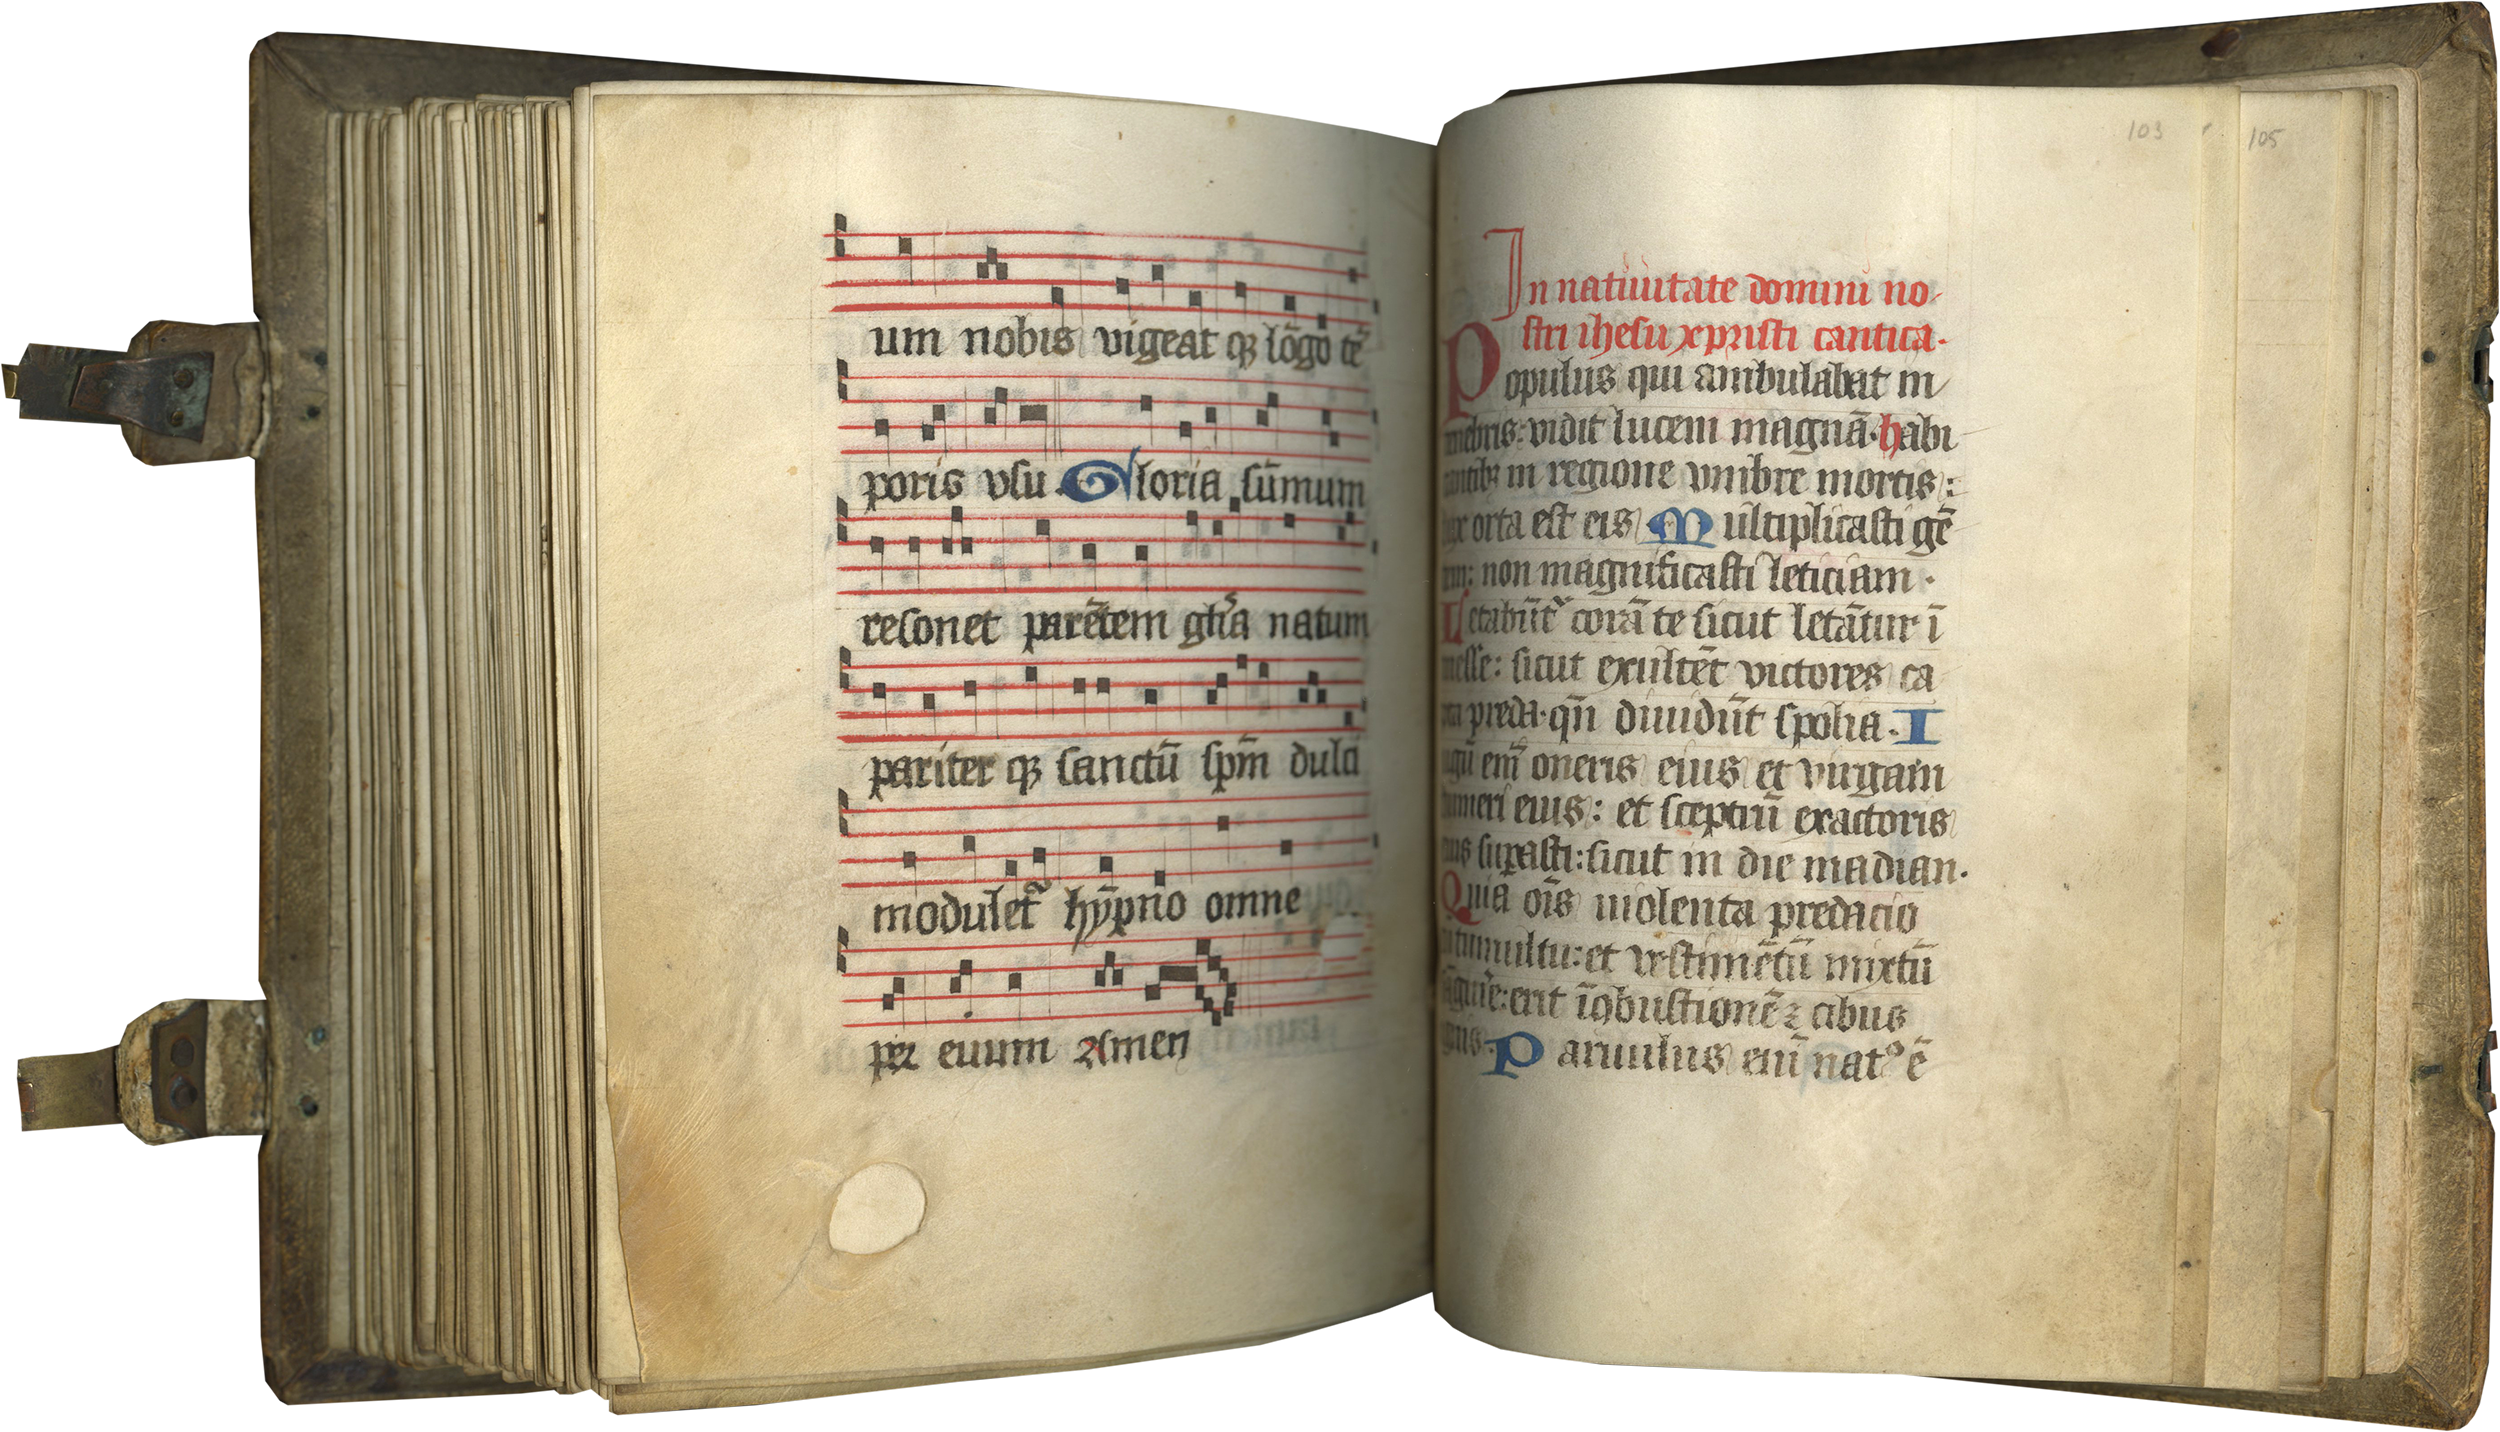 um nobis vigeat qꝫ lōgo tē
poris vsu Gloria sūmum
resonet parētem gl̄ia natum
pariter qꝫ sanctū sp̄m dulci
modulet᷑ hȳpno omne
per euum Amen
103
105
In natiuitate domini no
stri ihesu xpristi cantica.
Populus qui ambulabat in
tenebris: vidit lucem magnā. habi
tantibꝫ in regione vmbre mortis:
lux orta est eis Multiplicasti gē
tem: non magnificasti leticiam.
Letabūt᷑ corā te sicut letātur ī
messe: sicut exultēt victores ca
pta preda. qn̄ diuidūt spolia. I
ugū em̄ oneris eius et virgam
humeri eius: et sceptrū exactoris
eius suꝑasti: sicut in die madian.
Quia oīs violenta predacio
in tumultu: et vestimētū mixtū
sāguīe: erit ī ꝯbustionē ⁊ cibus
ignis. Paruulus eni᷑ natꝰ ē